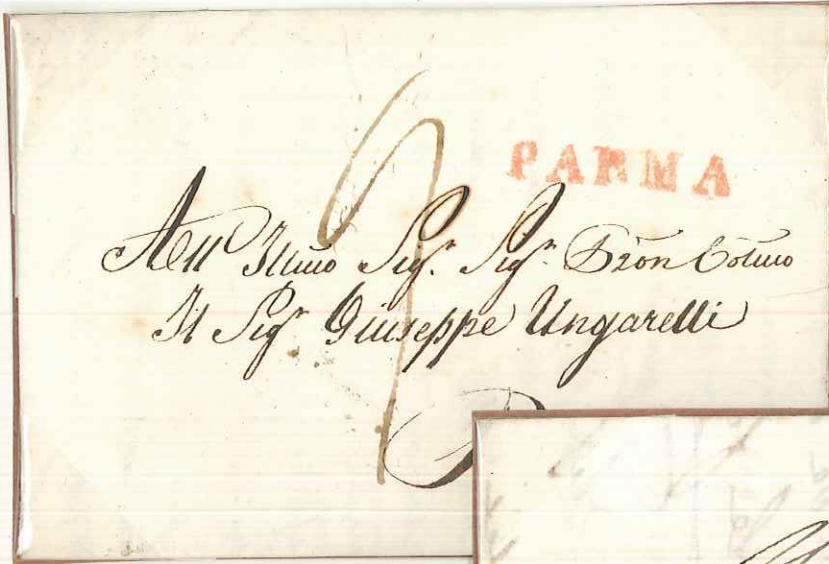 PARMA
All' Illmo Sigr. Sigr. Pron Colmo
Il Sigr Giuseppe Ungarelli